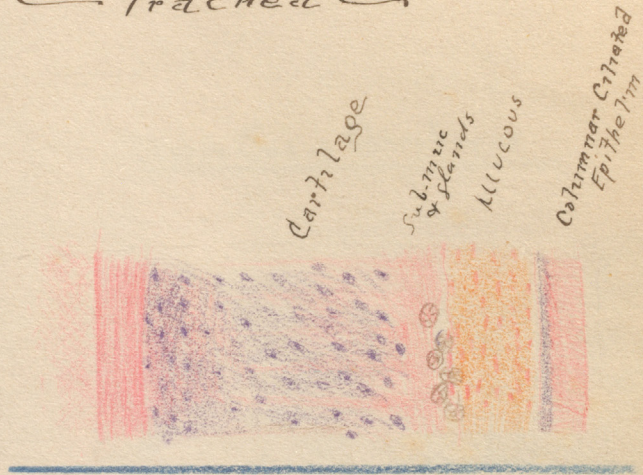 Trachea
Cartilage
Sub-muc
& glands
Mucous
Columnar Ciliated
Epithel'm